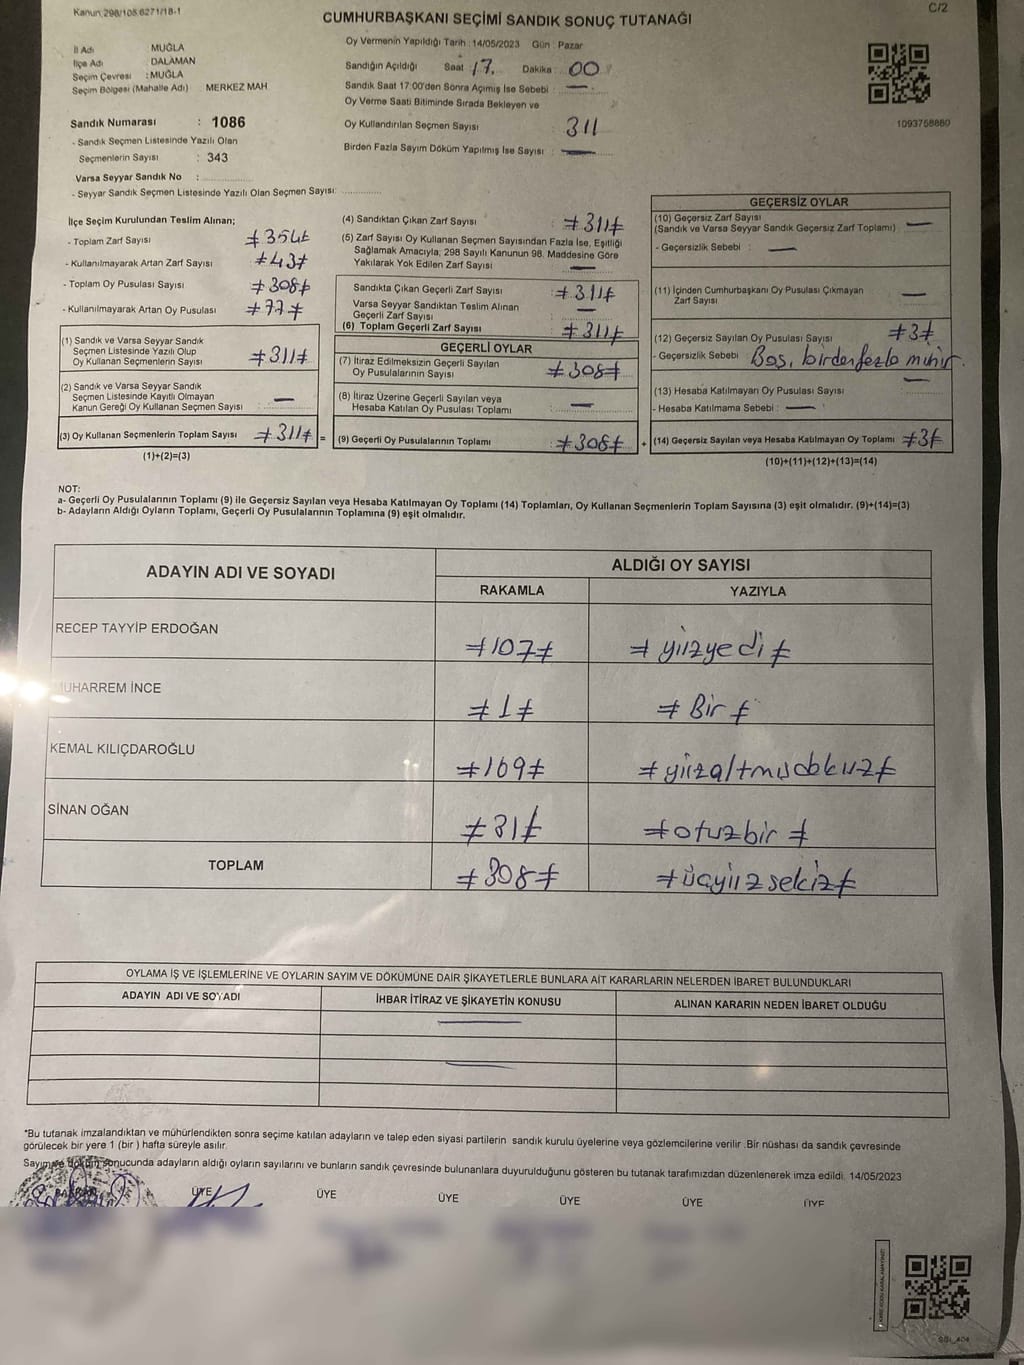 Kanun,298/108.6271/18-1
CUMHURBAŞKANI SEÇİMİ SANDIK SONUÇ TUTANAĞI
C/2
İl Adı MUĞLA
İlçe Adı : DALAMAN
Seçim Çevresi : MUĞLA
Seçim Bölgesi (Mahalle Adı) MERKEZ MAH
Sandık Numarası : 1086
- Sandık Seçmen Listesinde Yazılı Olan
Seçmenlerin Sayısı : 343
Varsa Seyyar Sandık No :
- Seyyar Sandık Seçmen Listesinde Yazılı Olan Seçmen Sayısı:
Oy Vermenin Yapıldığı Tarih : 14/05/2023 Gün : Pazar
Sandığın Açıldığı Saat 17. Dakika : 00
Sandık Saat 17:00'den Sonra Açımış İse Sebebi : —
Oy Verme Saati Bitiminde Sırada Bekleyen ve
Oy Kullandırılan Seçmen Sayısı 311
Birden Fazla Sayım Döküm Yapılmış İse Sayısı : —
1093758880
İlçe Seçim Kurulundan Teslim Alınan;
- Toplam Zarf Sayısı ≠354≠
- Kullanılmayarak Artan Zarf Sayısı ≠43≠
- Toplam Oy Pusulası Sayısı ≠308≠
- Kullanılmayarak Artan Oy Pusulası ≠77≠
(1) Sandık ve Varsa Seyyar Sandık
Seçmen Listesinde Yazılı Olup
Oy Kullanan Seçmenlerin Sayısı ≠311≠
(2) Sandık ve Varsa Seyyar Sandık
Seçmen Listesinde Kayıtlı Olmayan
Kanun Gereği Oy Kullanan Seçmen Sayısı : —
(3) Oy Kullanan Seçmenlerin Toplam Sayısı ≠311≠ =
(1)+(2)=(3)
(4) Sandıktan Çıkan Zarf Sayısı ≠311≠
(5) Zarf Sayısı Oy Kullanan Seçmen Sayısından Fazla İse, Eşitliği
Sağlamak Amacıyla, 298 Sayılı Kanunun 98. Maddesine Göre
Yakılarak Yok Edilen Zarf Sayısı —
Sandıkta Çıkan Geçerli Zarf Sayısı : ≠311≠
Varsa Seyyar Sandıktan Teslim Alınan
Geçerli Zarf Sayısı —
(6) Toplam Geçerli Zarf Sayısı ≠311≠
GEÇERLİ OYLAR
(7) İtiraz Edilmeksizin Geçerli Sayılan
Oy Pusulalarının Sayısı ≠308≠
(8) İtiraz Üzerine Geçerli Sayılan veya
Hesaba Katılan Oy Pusulası Toplamı : —
(9) Geçerli Oy Pusulalarının Toplamı : ≠308≠ +
GEÇERSİZ OYLAR
(10) Geçersiz Zarf Sayısı
(Sandık ve Varsa Seyyar Sandık Geçersiz Zarf Toplamı) —
- Geçersizlik Sebebi : —
(11) İçinden Cumhurbaşkanı Oy Pusulası Çıkmayan
Zarf Sayısı —
(12) Geçersiz Sayılan Oy Pusulası Sayısı ≠3≠
- Geçersizlik Sebebi Boş, birden fazla mühür.
(13) Hesaba Katılmayan Oy Pusulası Sayısı —
- Hesaba Katılmama Sebebi : —
(14) Geçersiz Sayılan veya Hesaba Katılmayan Oy Toplamı ≠3≠
(10)+(11)+(12)+(13)=(14)
NOT:
a- Geçerli Oy Pusulalarının Toplamı (9) ile Geçersiz Sayılan veya Hesaba Katılmayan Oy Toplamı (14) Toplamları, Oy Kullanan Seçmenlerin Toplam Sayısına (3) eşit olmalıdır. (9)+(14)=(3)
b- Adayların Aldığı Oyların Toplamı, Geçerli Oy Pusulalarının Toplamına (9) eşit olmalıdır.
ADAYIN ADI VE SOYADI ALDIĞI OY SAYISI
RAKAMLA YAZIYLA
RECEP TAYYİP ERDOĞAN ≠107≠ ≠ yüzyedi ≠
MUHARREM İNCE ≠1≠ ≠ Bir ≠
KEMAL KILIÇDAROĞLU ≠169≠ ≠yüzaltmışdokuz≠
SİNAN OĞAN ≠31≠ ≠otuzbir ≠
TOPLAM ≠308≠ ≠üçyüzsekiz≠
OYLAMA İŞ VE İŞLEMLERİNE VE OYLARIN SAYIM VE DÖKÜMÜNE DAİR ŞİKAYETLERLE BUNLARA AİT KARARLARIN NELERDEN İBARET BULUNDUKLARI
ADAYIN ADI VE SOYADI İHBAR İTİRAZ VE ŞİKAYETİN KONUSU ALINAN KARARIN NEDEN İBARET OLDUĞU
*Bu tutanak imzalandıktan ve mühürlendikten sonra seçime katılan adayların ve talep eden siyasi partilerin sandık kurulu üyelerine veya gözlemcilerine verilir .Bir nüshası da sandık çevresinde
görülecek bir yere 1 (bir ) hafta süreyle asılır.
Sayım ve döküm sonucunda adayların aldığı oyların sayılarını ve bunların sandık çevresinde bulunanlara duyurulduğunu gösteren bu tutanak tarafımızdan düzenlenerek imza edildi. 14/05/2023
BAŞKAN ÜYE ÜYE ÜYE ÜYE ÜYE ÜYE